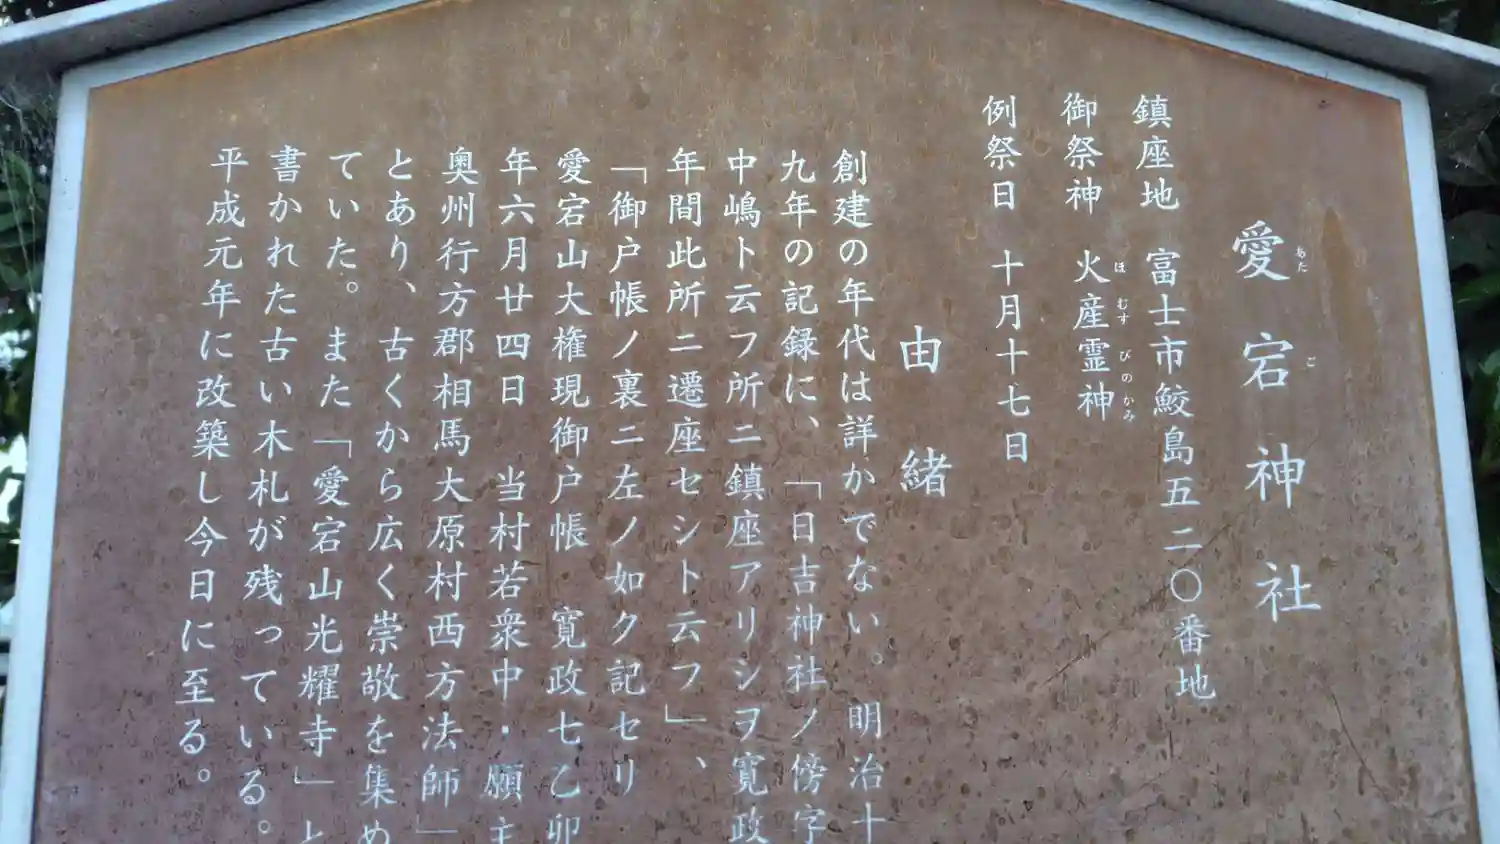 愛宕神社
あた
ご
鎮座地 富士市鮫島五二〇番地
御祭神 火産霊神
ほ むす びのかみ
例祭日 十月十七日
由緒
創建の年代は詳かでない。明治十
九年の記録に、「日吉神社ノ傍字
中嶋ト云フ所ニ鎮座アリシヲ寛政
年間此所ニ遷座セシト云フ」、
「御戸帳ノ裏ニ左ノ如ク記セリ
愛宕山大権現御戸帳 寛政七乙卯
年六月廿四日 当村若衆中・願主
奥州行方郡相馬大原村西方法師」
とあり、古くから広く崇敬を集め
ていた。また「愛宕山光耀寺」と
書かれた古い木札が残っている。
平成元年に改築し今日に至る。